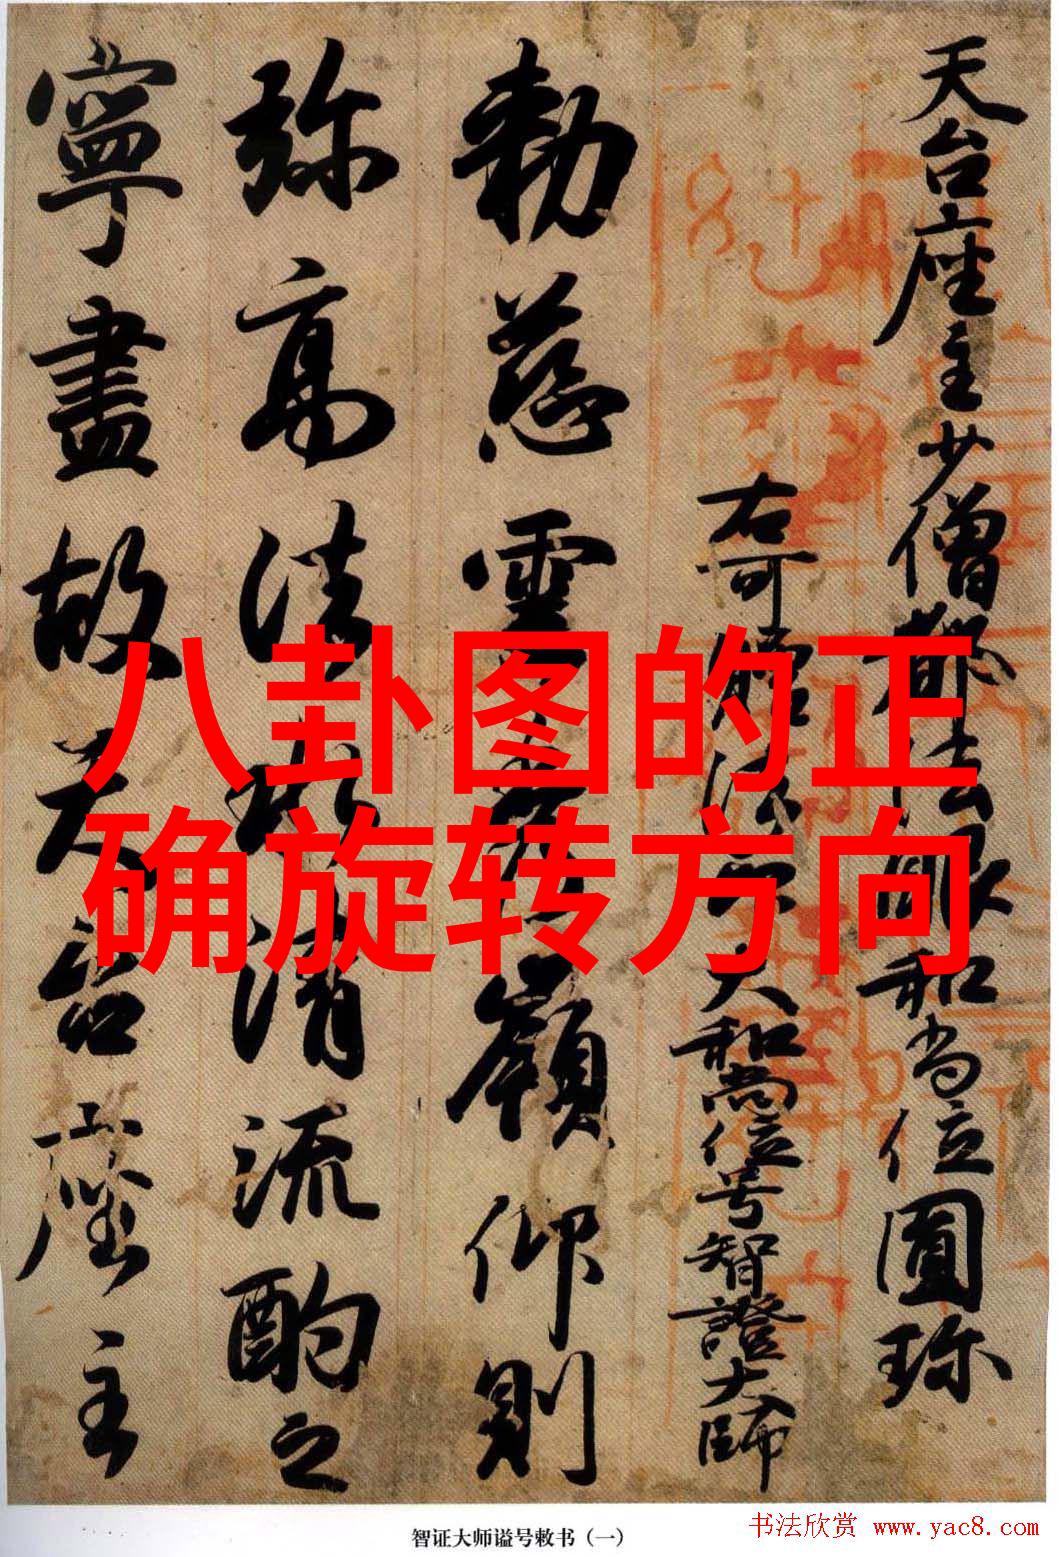 天台座主少僧都法眼和尚位圓珎
右可贈法印大和尚位号智證大師
勅慈雲秀嶺仰則
弥高法水清流酌之
寧盡故天台座主
八卦图的正
确旋转方向
智证大师谥号敕书（一）
书法欣赏 www.yac8.com